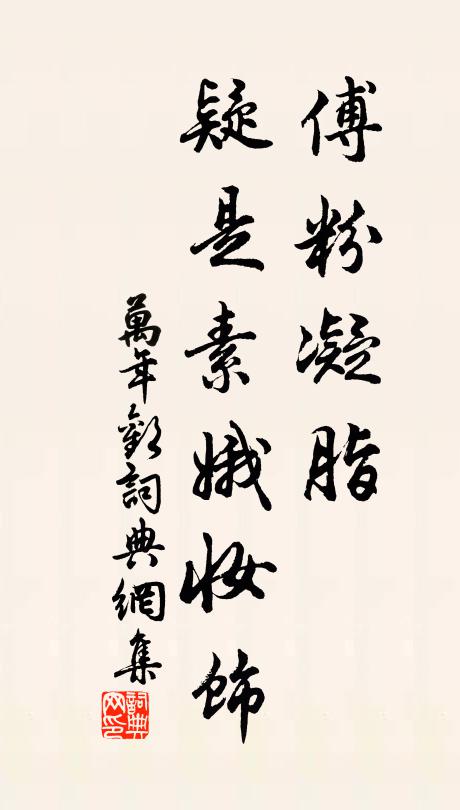 傅粉凝脂
疑是素娥妝飾
萬年歡詞典網集
詞典
网印